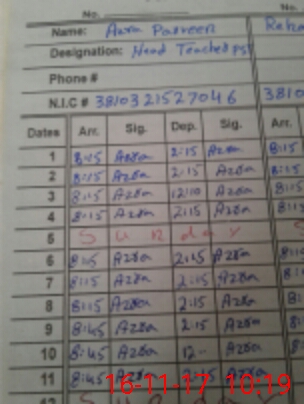 No. No.
Name: Azra Parveen
Designation: Head Teacher PS
Phone #
N.I.C # 3810321527046 3810
Dates Arr. Sig. Dep. Sig. Arr.
1 8:15 Azra 2:15 Azra 8:15
2 8:15 Azra 2:15 Azra 8:15
3 8:15 Azra 12:00 Azra 8:15
4 8:15 Azra 2:15 Azra 8:15
5 S u n d a y S
6 8:15 Azra 2:15 Azra 8:15
7 8:15 Azra 2:15 Azra 8:1
8 8:15 Azra 2:15 Azra
9 8:45 Azra 2:15 Azra
10 8:45 Azra 12 Azra
11 8:45 Azra 2:15 Azra
12
16-11-17 10:19